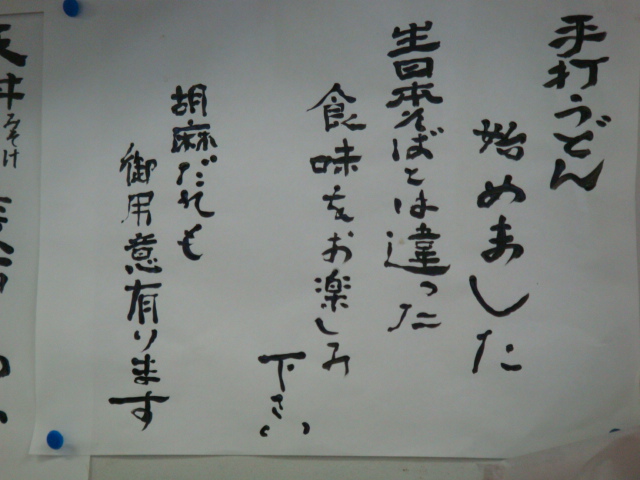 手打うどん
始めました
生日本そばとは違った
食味をお楽しみ
下さい
胡麻だれも
御用意有ります
天丼みそ汁